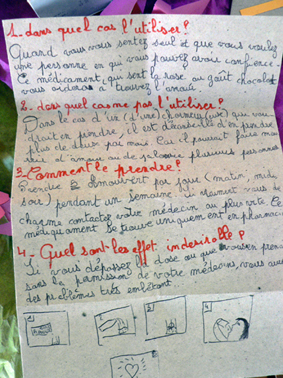 1. dans quel cas l'utiliser?
Quand vous vous sentez seul et que vous voulez
une personne en qui vous pouvez avoir confience.
Ce médicament, qui sent la rose au goût chocolat
vous aideras a trouver l'amour.
2. dans quel cas ne pas l'utiliser?
Dans le cas d'un (d'une) (use) que vou-
droit en prendre, il est déconseillé d'en prendre
plus de deux par mois. Car il pourrait faire mou-
rir d'amour ou de plusieurs personnes
3. Comment le prendre?
Prendre 3 par jour (matin, midi,
soir) pendant un semaine vous
charme contactez votre médecin au plus vite. Ce
médiquament se trouve uniquement en pharmacie
4. Quel sont les effet indésirable?
Si vous dépassez la dose ou que vous en prenez
sans la permission de votre médecins, vous aurez
des problèmes très embêtant.
1
2
3
4